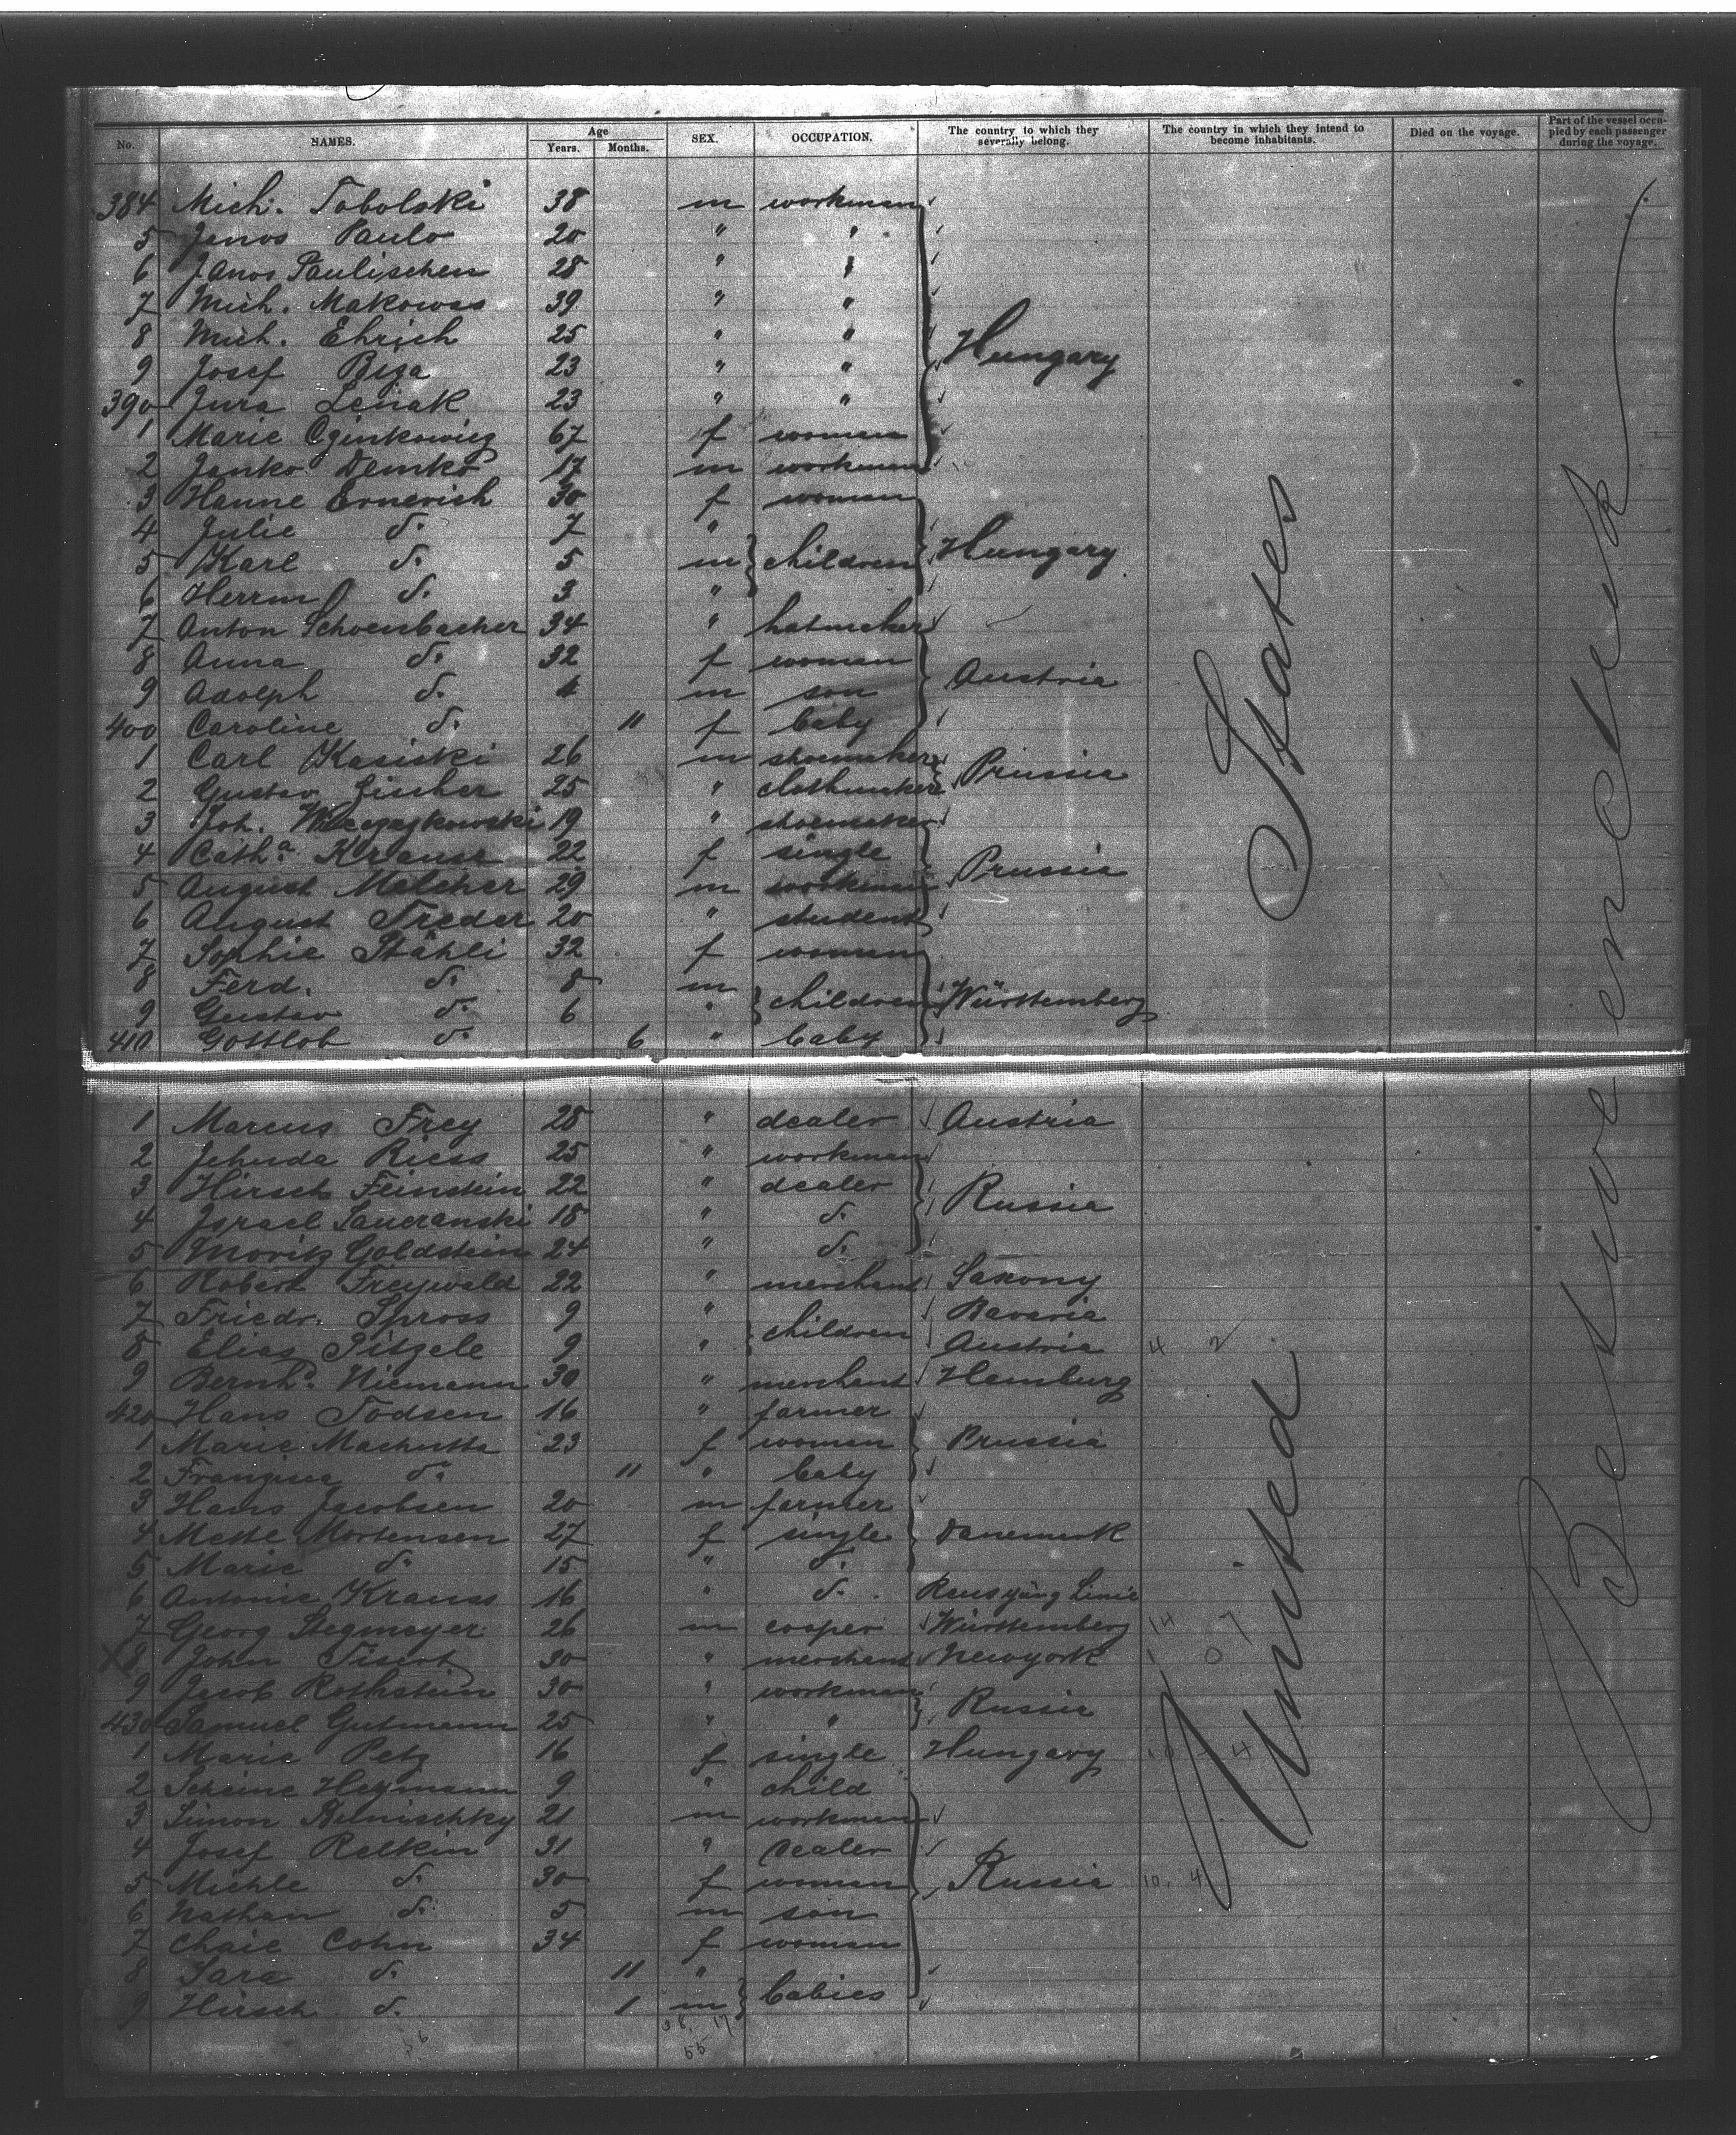 No. NAMES. Age Years. Months. SEX. OCCUPATION. The country to which they severally belong. The country in which they intend to become inhabitants. Died on the voyage. Part of the vessel occupied by each passenger during the voyage.
384 Mich. Tobolski 38 m workman
5 Janos Paulo 20 " "
6 Janos Paulischen 28 " "
7 Mich. Makowss 39 " "
8 Mich. Ehrich 25 " " Hungary
9 Josef Biga 23 " "
390 Jura Lenak 23 " "
1 Marie 67 f woman
2 Janko Demko 17 m workman
3 Hanne 30 f woman
4 Julie d. 7 "
5 Karl d. 5 m children Hungary
6 Herrm d. 3 "
7 Anton Schoenbacher 34 " hatmaker
8 Anna d. 32 f woman Austria
9 Adolph d. 4 m son
400 Caroline d. 11 f baby
1 Carl Kasiski 26 m shoemaker Prussia
2 Gustav Fischer 25 " clothmaker
3 Joh. 19 " shoemaker
4 Cath.a Krauss 22 f single Prussia
5 August Melcher 29 m workman
6 August Treder 20 " student
7 Sophie Stähli 32 f woman
8 Ferd. d. 8 m children Württemberg
9 Gustav d. 6 "
410 Gottlob d. 6 " baby
1 Marcus Frey 28 " dealer Austria
2 Jehuda Riess 25 " workman
3 Hirsch Feinstein 22 " dealer Russia
4 Israel Saucranski 18 " d.
5 Moritz Goldstein 24 " d.
6 Robert Freywald 22 " merchant Saxony
7 Friedr. Spross 9 " children Bavaria
8 Elias Pitzele 9 " Austria 4 2
9 Bernh.d Niemann 30 " merchant Hamburg
420 Hans Todsen 16 " farmer
1 Marie Machutta 23 f woman Prussia
2 Franzisca d. 11 " baby
3 Hans Jacobsen 20 m farmer
4 Mette Mortensen 27 f single Danemark
5 Marie d. 15 " d.
6 Antonie Krauss 16 " d.
7 Georg Stegmayer 26 m cooper Württemberg 14 7
8 John 30 " merchant Newyork 1 0
9 Jacob Rothstein 30 " workman Russia
430 Samuel Gutmann 25 " "
1 Marie Petz 16 f single Hungary 10 4
2 Scheine Heymann 9 " child
3 Simon 21 m workman
4 Josef Relkin 31 " dealer
5 Michle d. 30 f woman Russia 10. 4
6 Nathan d. 5 m son
7 Chaie Cohn 34 f woman
8 Sara d. 11 " babies
9 Hirsch d. 1 m
38. 17
55
United States
Between deck